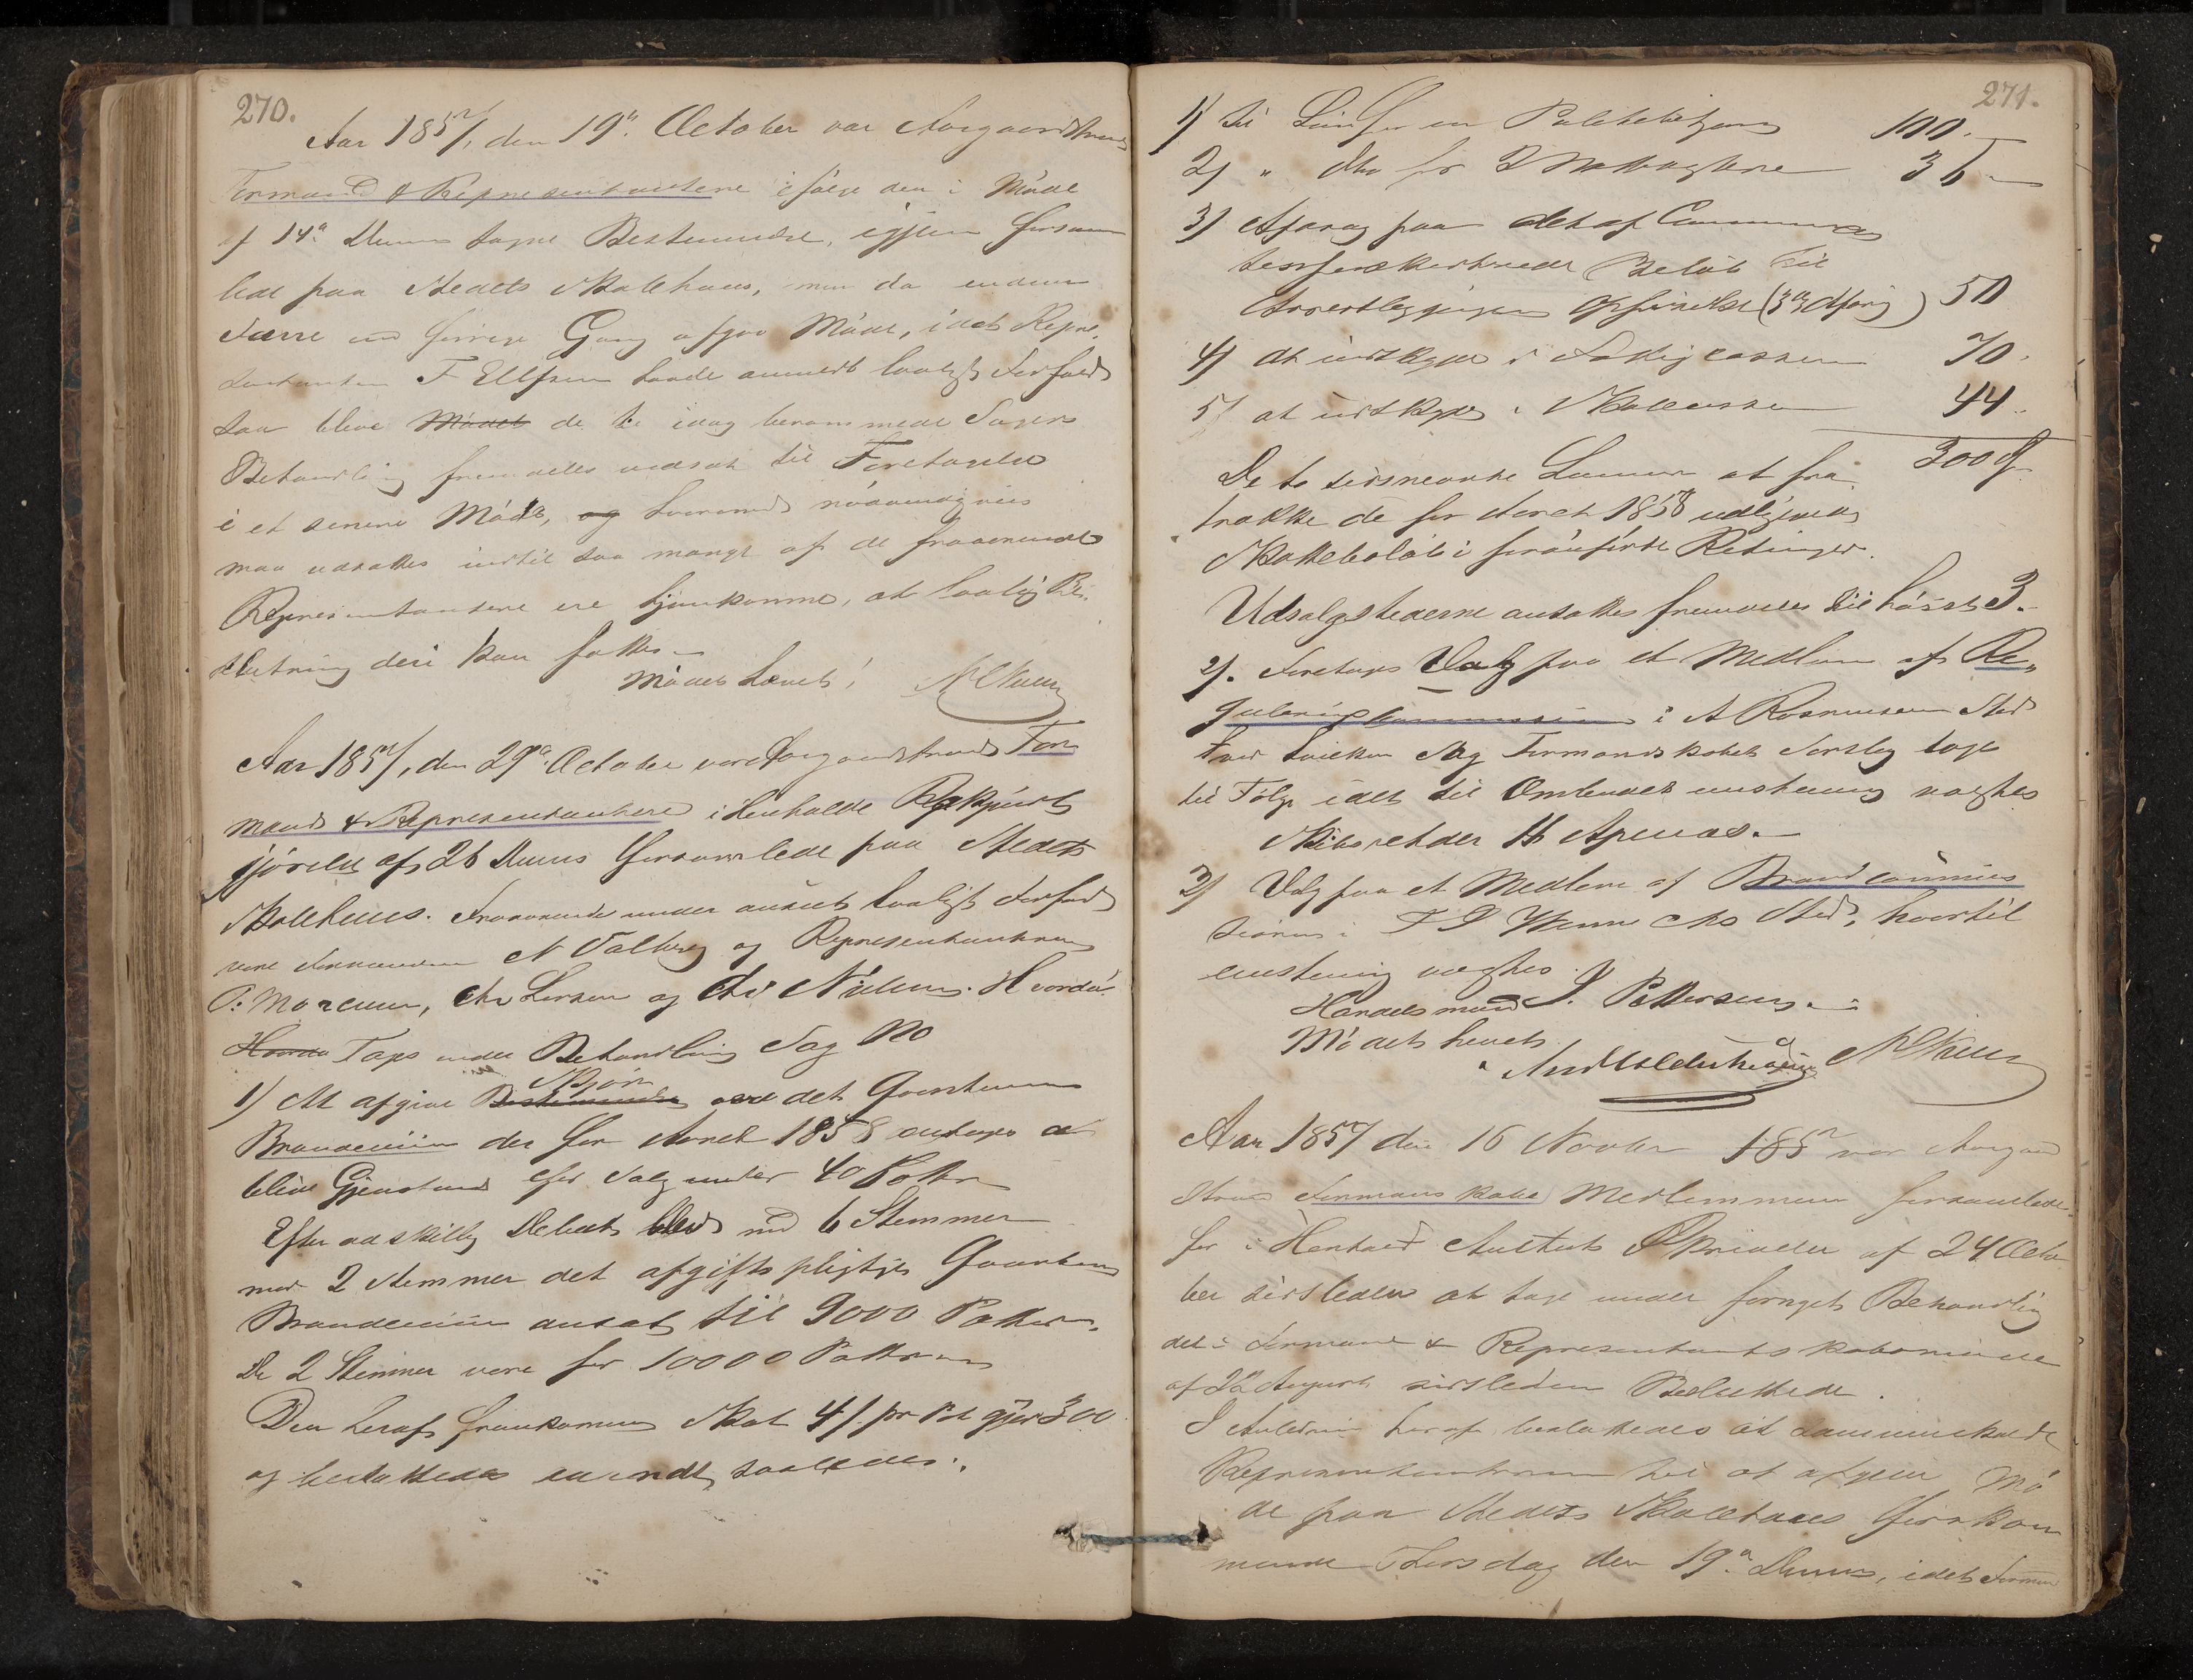 270.
Aar 1857, den 19de October var Aasgaardstrands
Formænd & Repræsentantene ifølge den i Møde
af 14de Dennes tagne Bestemmelse, igjen forsam
lede paa Stedets Skolehuus, men da endnu
færre end forrige Gang afgav Møde, idet Repre,
sentanten F Ellefsen havde anmeldt lovligt Forfald
saa bleve Mødet de til idag berammede Sagers
Behandling fremdeles udsat til Foretagelse
i et senere Møde, og hvormed nødvendigviis
maa udsættes indtil saa mange af de fraværende
Repræsentantere ere hjemkomne, at lovlig Be,
slutning deri kan fattes.
Mødet hævet!
Aar 1857, den 29de October vare Aasgaardstrands For
mænd & Repræsentantere i Henhold Bekjendt
gjørelse af 26 Dennes forsamlede paa Stedets
Skolehuus. Fraværende under anført lovligt Forfald
vare Formanden N Falberg og Repræsentanterne
P: Marcussen, Chr Larsen og Chr Nielsen. Hvorda
Hvorda Toges under Behandling Sag No
1) At afgive Bestemmelse Skjøn over det Qvantum
Brændeviin der for Aaret 1858 antages at
blive Gjenstand for Salg under 40 Potter
Efter adskillig Debat blev med 6 Stemmer
mod 2 Stemmer det afgiftspligtige Qvantum
Brændeviin ansat til 9000 Potter.
De 2 Stemmer vare for 10000 Potter
Den heraf fremkomne Skat 4 s. pr Pot gjør 300
og besluttedes anvendt saaledes:
271.
1) til Løn for en Politibetjent 100.
2) " dto for 2 Natvægtere 36
3) Afdrag paa det af Commu
til
50
4) at indskyde i Fattigcassen 70.
5) at indskyde i Skolecassen 44.
300 
De to sidstnævnte Summer at fra
trække de for Aaret 1858 udlignede
Skattebeløb i foranførte Retninger.
Udsalgstederne ansattes fremdeles til høist 3.
2). Foretoges Valg paa et Medlem af Re,
guleringscommissionen i A Rasmussens Sted
hvilken Sag Formandskabets Forslag toges
til Følge idet til Ombudet eenstemmig valgtes
H Apenæs.
3) Valg paa et Medlem af Brandcommis
sionen i Sted, hvortil
eenstemmig valgtes
Handelsmand J. Pettersen.
Mødet hævet.
Aar 1857 den 16 Novbr 185 var Aasgaard
strands Formandskabs Medlemmer forsamlede
for i Henhold Amtets Skrivelse af 24 Octo
ber sidstleden at tage under fornyet Behandling
det i Formænd & Representantskabsmøde
af August sidstleden Besluttede.
I Anledning heraf besluttedes at sammenkalde
Repræsentanterne til at afgive Mø
de paa Stedets Skolehuus førstkom
mende Torsdag den 19de Dennes, idet Forman